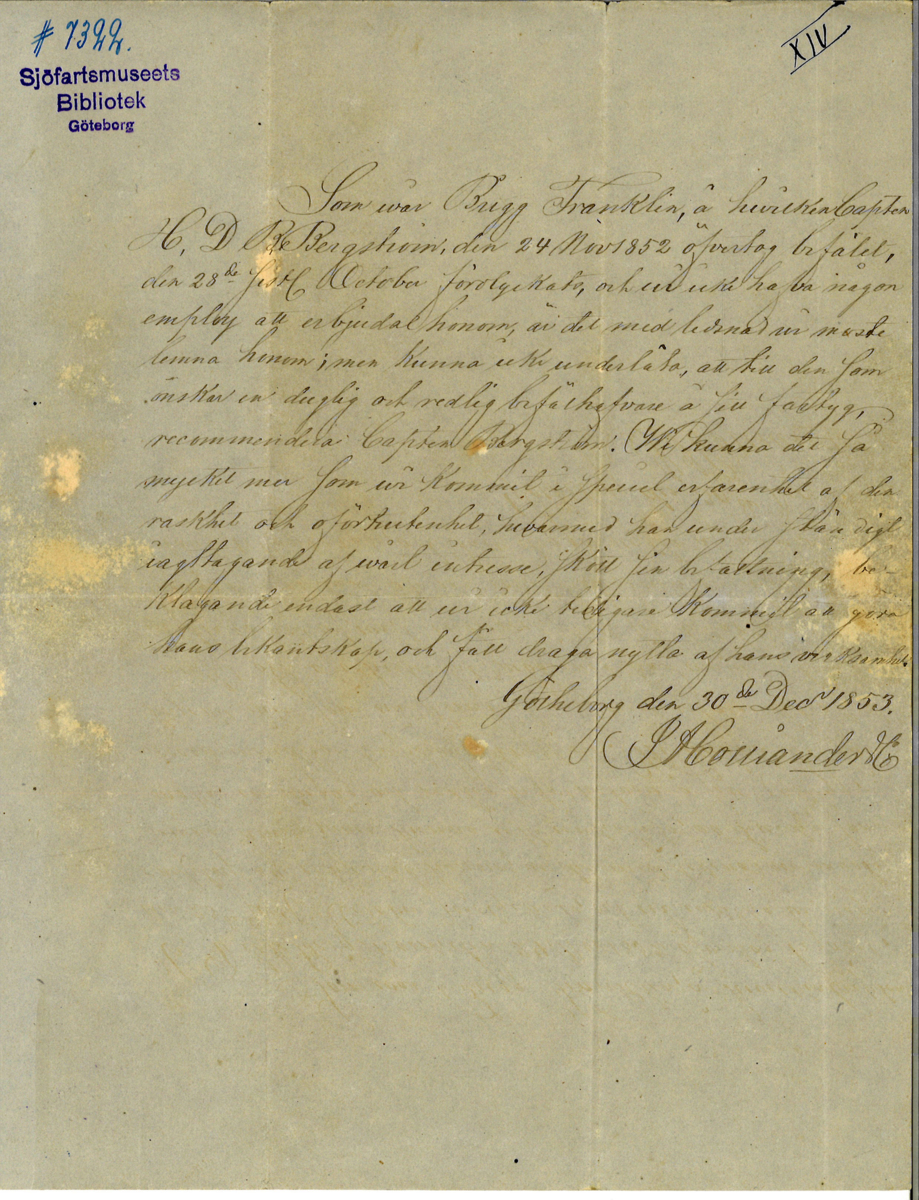 # 7322.
XIV
Sjöfartsmuseets
Bibliotek
Göteborg
Som wår Brigg Franklin, å hwilken Capten
H. D. Bergström, den 24 Nov 1852 öfvertog befälet,
den 28de October förolyckats, och wi icke hafva någon
employ att erbjuda honom, är det med ledsnad wi måste
lemna honom; men kunna icke underlåta, att till den som
önskar en duglig och redlig befälhafvare å sitt fartyg,
recommendera Capten Bergström. Wi kunna det så
mycket mer som wi kommit i speciel erfarenhet af den
raskhet och oförtrutenhet, hwarmed han under ständigt
iagttagande af wårt intresse, skött sin befattning, be-
klagande endast att wi icke tidigare kommit att göra
hans bekantskap, och fått draga nytta af hans verksamhet.
Götheborg den 30de Decr 1853.
&Co